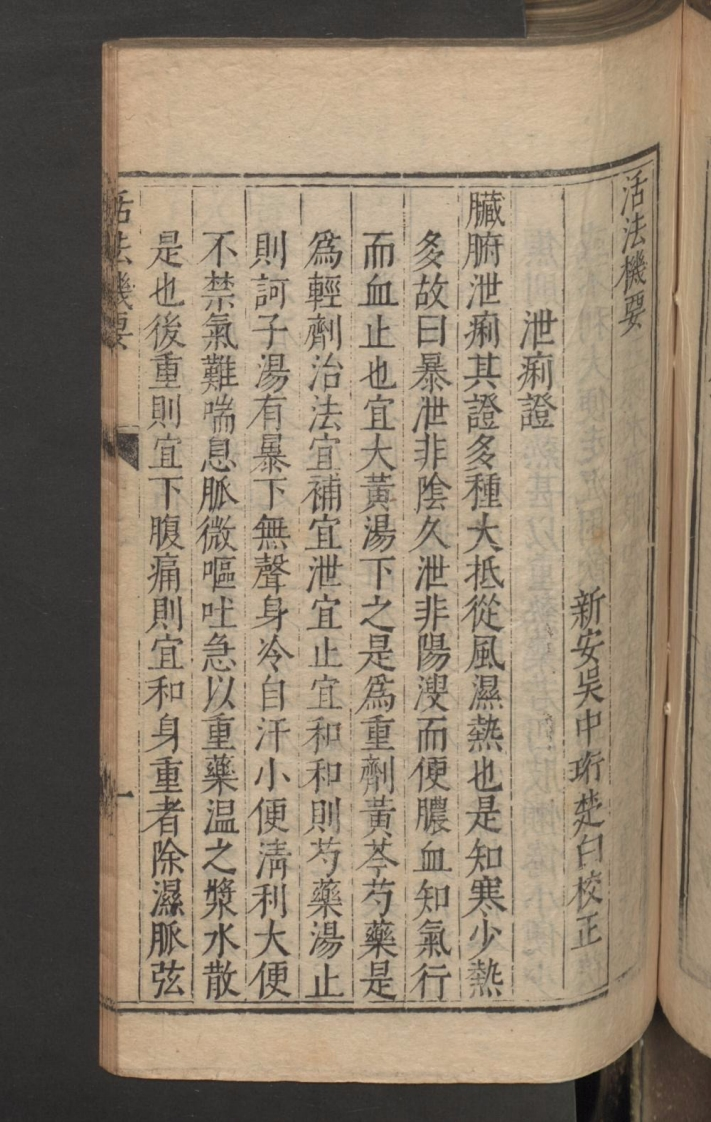 活法機要
新安吳中珩楚白校正
泄痢證
臟腑泄痢其證多種大抵從風濕熱也是知寒少熱
多故曰暴泄非陰久泄非陽溲而便膿血知氣行
而血止也宜大黃湯下之是爲重劑黃芩芍藥是
爲輕劑治法宜補宜泄宜止宜和和則芍藥湯止
則訶子湯有暴下無聲身冷自汗小便淸利大便
不禁氣難喘息脈微嘔吐急以重藥温之漿水散
是也後重則宜下腹痛則宜和身重者除濕脈弦
活法機要
一